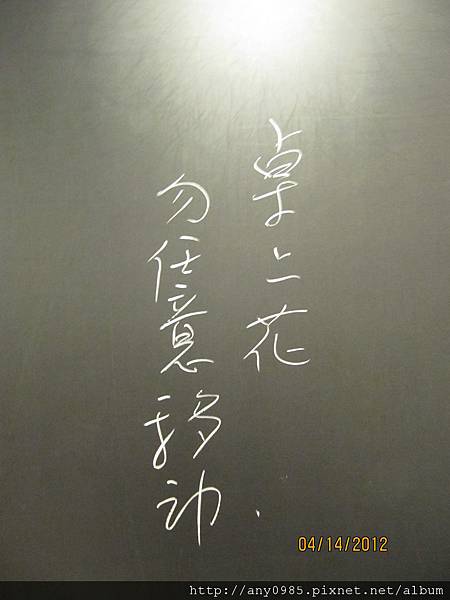 桌上花
勿任意移动.
04/14/2012
http://any0985.pixnet.net/album